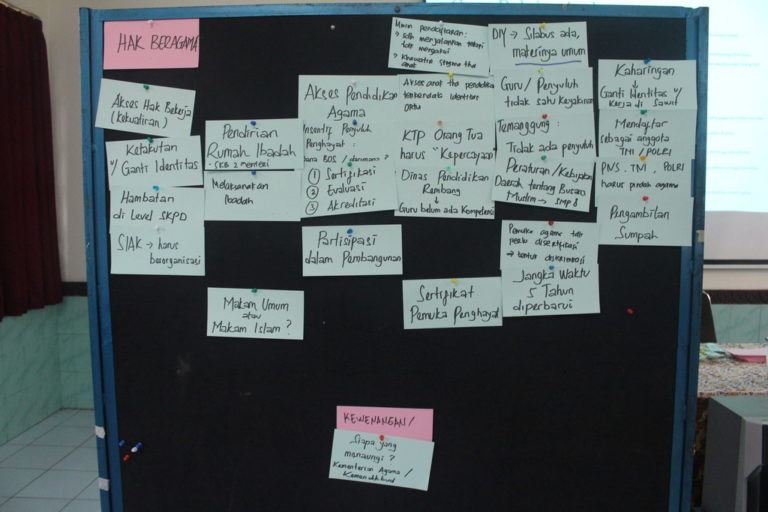 HAK BERAGAMA
Akses Hak Bekerja
(Kekuatiran)
Ketakutan
u/ Ganti Identitas
Hambatan
di Level SKPD
SIAK → harus
berorganisasi
Pendirian
Rumah Ibadah
• SKB 2 menteri
Melaksanakan
Ibadah
Makam Umum
atau
Makam Islam ?
Akses Pendidikan
Agama
Insentif Penyuluh
Penghayat :
① Sertifikasi
② Evaluasi
③ Akreditasi
Partisipasi
dalam Pembangunan
pendidikan
identitas
KTP Orang Tua
harus "Kepercayaan"
Dinas Pendidikan
Rembang
↓
Guru belum ada Kompetensi
Sertifikat
Pemuka Penghayat
DIY → Silabus ada,
materinya umum
Guru / Penyuluh
tidak satu keyakinan
Temanggung :
Tidak ada penyuluh
Peraturan / Kebijakan
Daerah tentang Busana
Muslim → SMP 8
Pemuka agama
perlu disertifikasi
Jangka Waktu
5 Tahun
diperbarui
Kaharingan
↓
Ganti Identitas u/
Kerja di Sawit
Mendaftar
sebagai anggota
TNI / POLRI
PNS, TNI, POLRI
harus pindah agama
Pengambilan
Sumpah
KEWENANGAN /
Siapa yang
menaungi ?
Kementerian Agama /
Kemendikbud